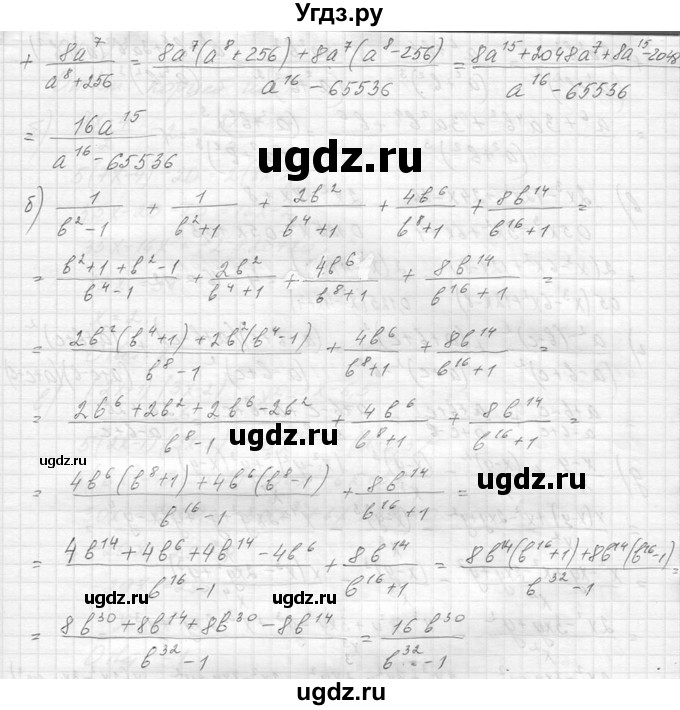 Угдз.ру
+ 8a⁷/(a⁸+256) = (8a⁷(a⁸+256)+8a⁷(a⁸-256))/(a¹⁶-65536) = (8a¹⁵+2048a⁷+8a¹⁵-2048/(a¹⁶-65536)
= 16a¹⁵/(a¹⁶-65536)
ugdz.ru
ugdz.ru
б) 1/(b²-1) + 1/(b²+1) + 2b²/(b⁴+1) + 4b⁶/(b⁸+1) + 8b¹⁴/(b¹⁶+1) =
= (b²+1+b²-1)/(b⁴-1) + 2b²/(b⁴+1) + 4b⁶/(b⁸+1) + 8b¹⁴/(b¹⁶+1) =
= (2b²(b⁴+1)+2b²(b⁴-1))/(b⁸-1) + 4b⁶/(b⁸+1) + 8b¹⁴/(b¹⁶+1) =
= (2b⁶+2b²+2b⁶-2b²)/(b⁸-1) + 4b⁶/(b⁸+1) + 8b¹⁴/(b¹⁶+1) =
ugdz.ru
ugdz.ru
= (4b⁶(b⁸+1)+4b⁶(b⁸-1))/(b¹⁶-1) + 8b¹⁴/(b¹⁶+1) =
ugdz.ru
= (4b¹⁴+4b⁶+4b¹⁴-4b⁶)/(b¹⁶-1) + 8b¹⁴/(b¹⁶+1) = (8b¹⁴(b¹⁶+1)+8b¹⁴(b¹⁶-1))/(b³²-1) =
ugdz.ru
ugdz.ru
= (8b³⁰+8b¹⁴+8b³⁰-8b¹⁴)/(b³²-1) = 16b³⁰/(b³²-1)
ugdz.ru
ugdz.ru